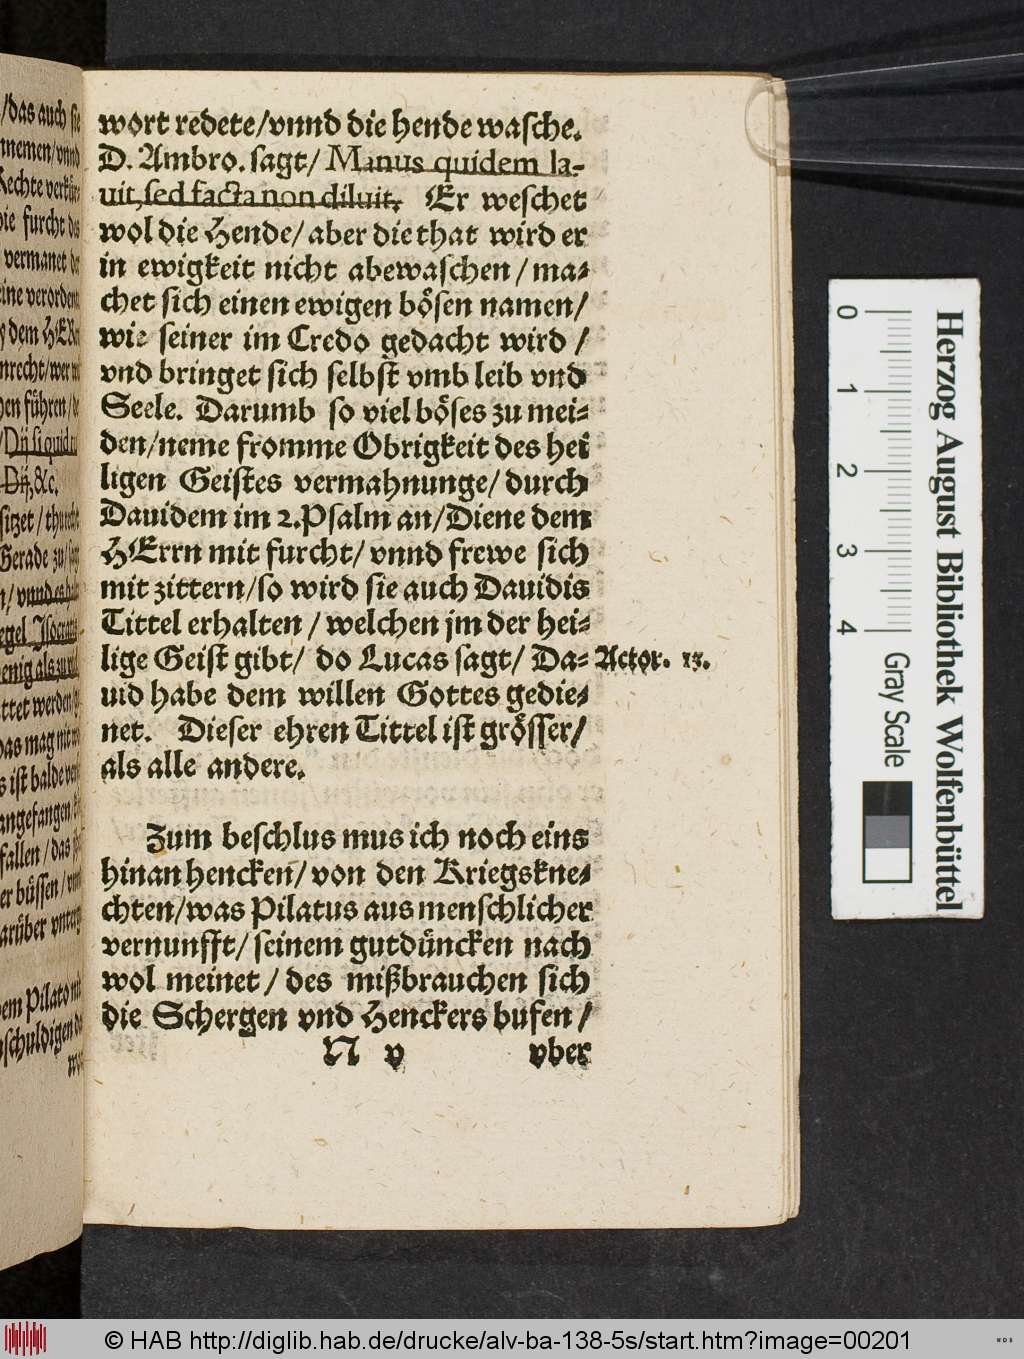 wort redete/vnnd die hende wasche.
D. Ambro. sagt/ Manus quidem la-
uit, sed facta non diluit. Er weschet
wol die Hende/ aber die that wird er
in ewigkeit nicht abewaschen / ma-
chet sich einen ewigen bösen namen/
wie seiner im Credo gedacht wird /
vnd bringet sich selbst vmb leib vnd
Seele. Darumb so viel böses zu mei-
den/neme fromme Obrigkeit des hei
ligen Geistes vermahnunge/ durch
Dauidem im 2.Psalm an/Diene dem
HErrn mit furcht/ vnnd frewe sich
mit zittern/so wird sie auch Dauidis
Tittel erhalten / welchen jm der hei-
lige Geist gibt/ do Lucas sagt/ Da- Actor. 13.
uid habe dem willen Gottes gedie-
net. Dieser ehren Tittel ist grösser/
als alle andere.
Zum beschlus mus ich noch eins
hinan hencken/ von den Kriegskne-
chten/was Pilatus aus menschlicher
vernunfft/ seinem gutdüncken nach
wol meinet / des mißbrauchen sich
die Schergen vnd Henckers bufen /
N v vber
/das auch sie
nnemen/vnnd
furcht des
vermanet der
dem HERrn
nrecht/wer
führen/
/Dij si quid
Dij, &c.
sitzet / thut
Gerade zu/
/ vnnd es
egel Isocratis
enig als zu
ttet werden/
das mag nit
s ist balde
angefangen
fallen / das
er büssen / vnd
arüber
dem Pilato
schuldigen
Herzog August Bibliothek Wolfenbüttel
0 1 2 3 4 Gray Scale
© HAB http://diglib.hab.de/drucke/alv-ba-138-5s/start.htm?image=00201
WDB